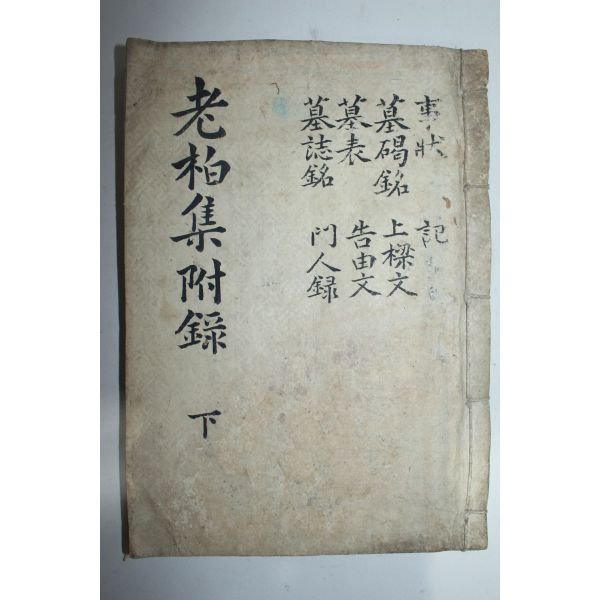 事狀 記
墓碣銘 上樑文
墓表 告由文
墓誌銘 門人録
老柏集附錄 下